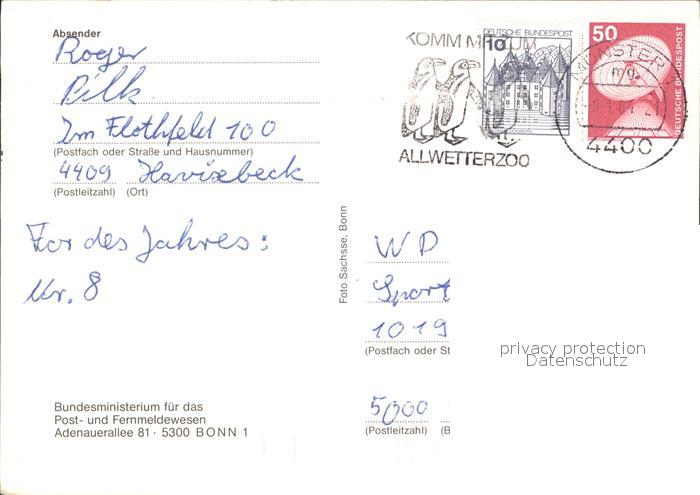 Absender
Roger
Pilk
Im Flothfeld 100
(Postfach oder Straße und Hausnummer)
4409 Havixbeck
(Postleitzahl) (Ort)
Tor des Jahres:
Nr. 8
Bundesministerium für das
Post- und Fernmeldewesen
Adenauerallee 81 · 5300 BONN 1
Foto Sachsse, Bonn
KOMM MIT ZUM
ALLWETTERZOO
10
DEUTSCHE BUNDESPOST
50
DEUTSCHE BUNDESPOST
MÜNSTER
mg
4400
WD
Sport
1019
(Postfach oder St
privacy protection
Datenschutz
5000
(Postleitzahl) (B